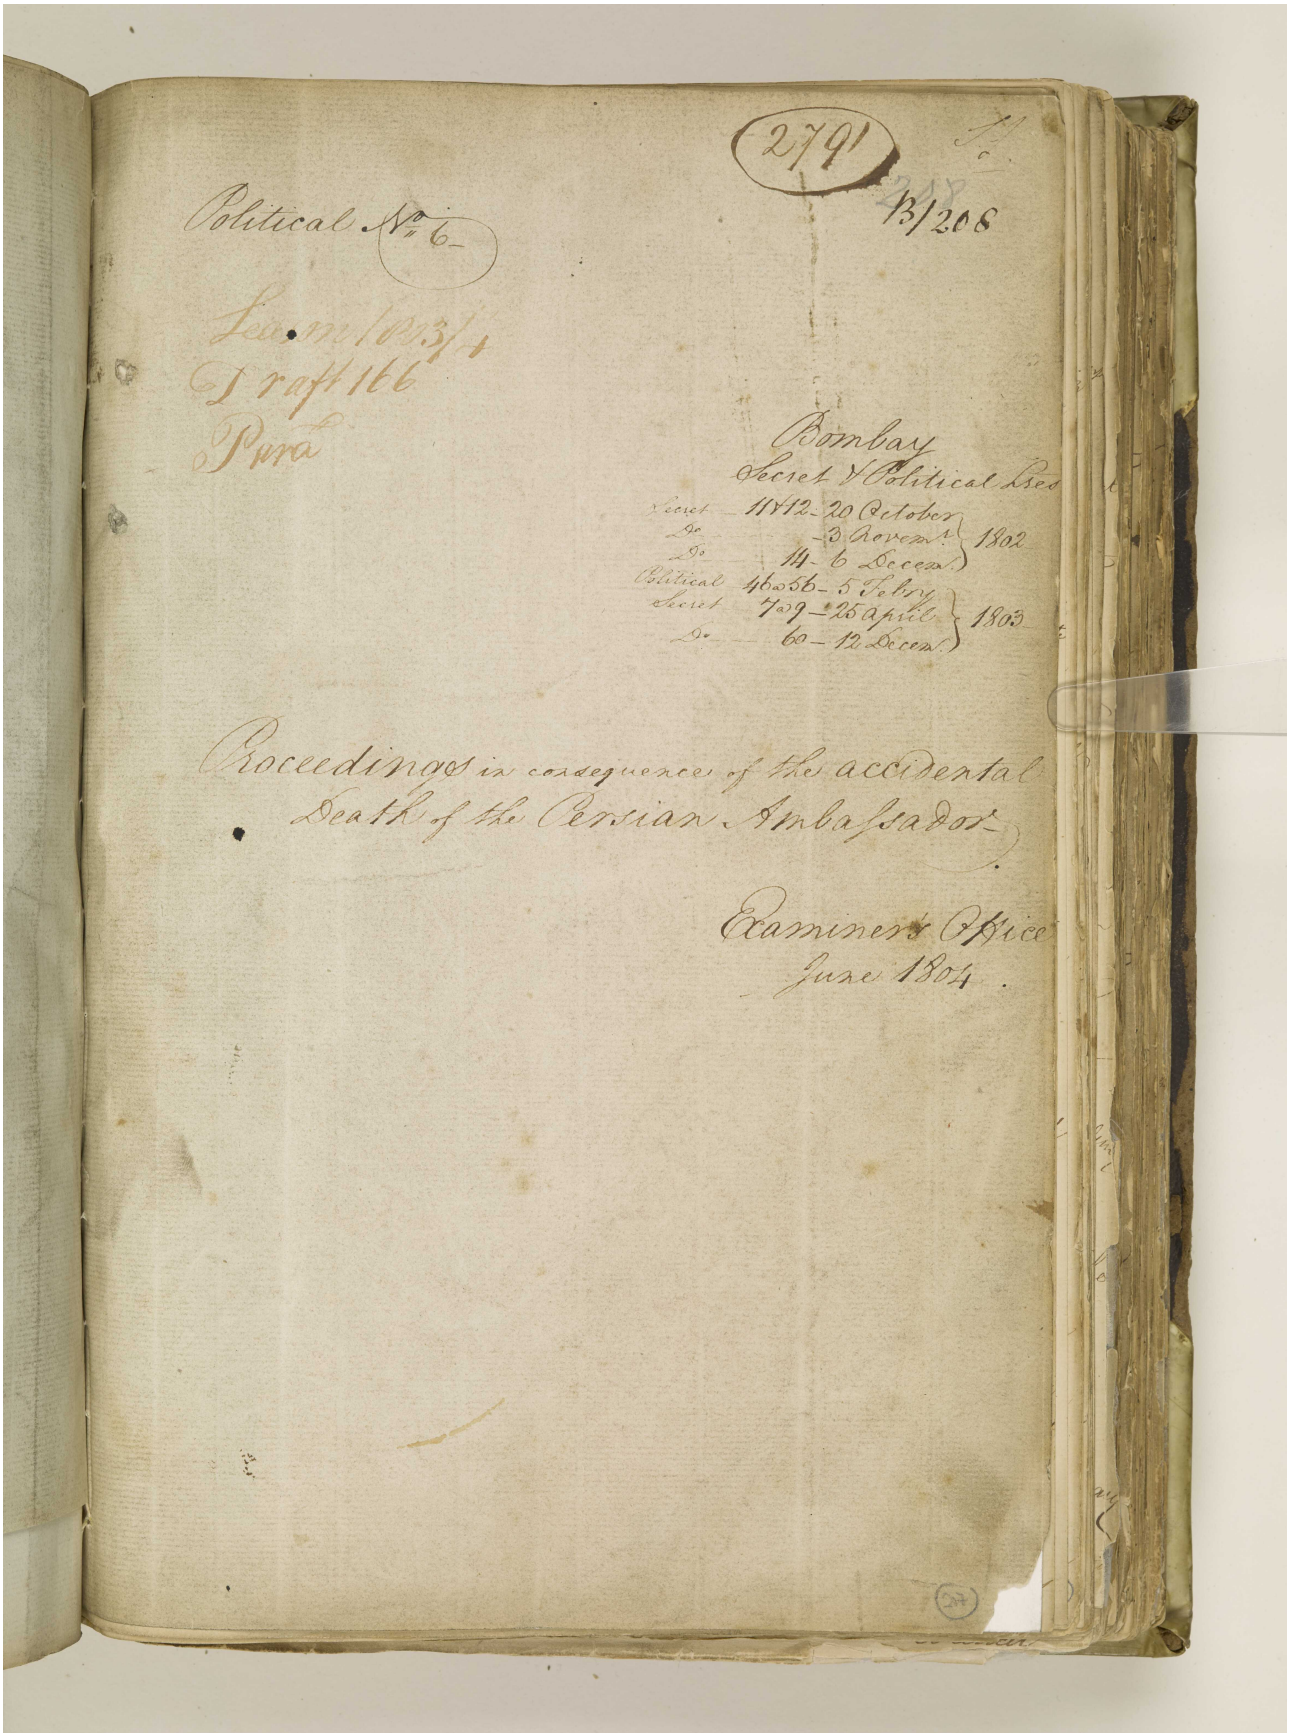 2791
B/208
Political No. 6
Season 1803/4
Draft 166
Para
Bombay
Secret & Political Des
Secret 11&12 - 20 October
Do - 3 Novemr
Do 14 - 6 Decem. } 1802
Political 46@56 - 5 Febry
Secret 7@9 - 25 April } 1803
Do 60 - 12 Decem.
Proceedings in consequence of the accidental
Death of the Persian Ambassador
Examiner's Office
June 1804.